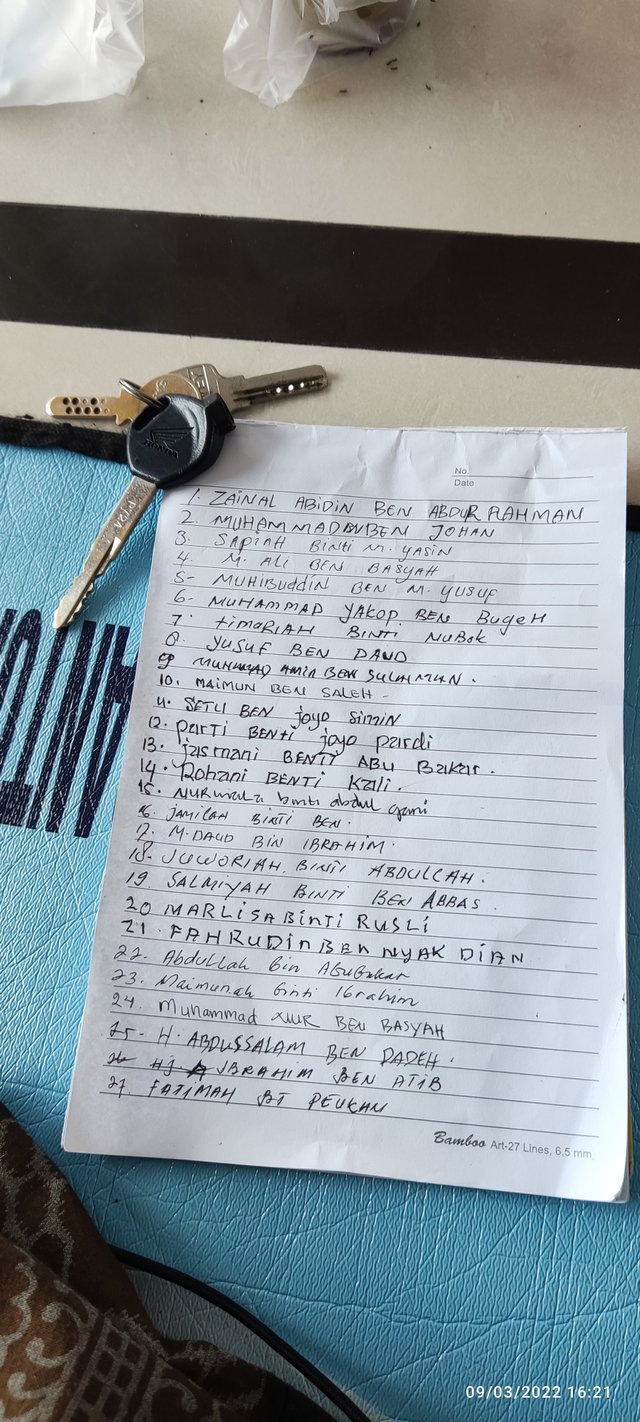 HONDA
No.
Date
1. ZAINAL ABIDIN BEN ABDUR RAHMAN
2. MUHAMMAD BEN JOHAN
3. SAPIAH BINTI M. YASIN
4. M. ALI BEN BASYAH
5- MUHIBUDDIN BEN M. YUSUF
6- MUHAMMAD YAKOP BEN BUGEH
7. timARIAH BINTI NUBOK
8. YUSUF BEN DAUD
9 MUHMMAD AMIN BEN SULAIMUN.
10. MAIMUN BEN SALEH -
11. SETU BEN joyo Simin
12. parti BENti joyo pardi
13. jasmani BENTI ABU Bakar.
14. Rohani BENTI Kali.
15. NURMALA binti abdul gani
16. JAMILAH BINTI BEN.
17. M. DAUD BIN IBRAHIM.
18- JUWORIAH. BINTI ABDULLAH.
19 SALMIYAH BINTI BEN ABBAS.
20 MARLISA BINTI RUSLI
21. FAHRUDIN BEN NYAK DIAN
22. Abdullah bin Abubakar
23. Maimunah binti Ibrahim
24. Muhammad NUR BEN BASYAH
25- H. ABDUSSALAM BEN DADEH.
26 Hj IBRAHIM BEN ATIB
27. FATIMAH BT PEUKAN
Bamboo Art-27 Lines, 6,5 mm.
09/03/2022 16:21